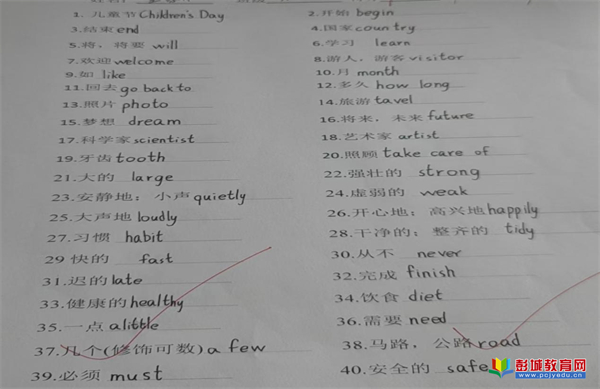 1. 儿童节Children's Day
2.开始 begin
3.结束end
4.国家country
5.将，将要 will
6.学习 learn
7.欢迎welcome
8.游人，游客visitor
9.如 like
10.月 month
11.回去go back to
12.多久 how long
13.照片 photo
14.旅游 tavel
15.梦想 dream
16.将来，未来future
17.科学家scientist
18.艺术家 artist
19.牙齿tooth
20.照顾 take care of
21.大的 large
22.强壮的 strong
23.安静地；小声quietly
24.虚弱的 weak
25.大声地loudly
26.开心地；高兴地happily
27.习惯 habit
28.干净的；整齐的 tidy
29 快的 fast
30.从不 never
31.迟的late
32.完成 finish
33.健康的healthy
34.饮食 diet
35.一点 a little
36.需要need
37.几个(修饰可数)a few
38.马路，公路road
39.必须 must
40.安全的 safe
彭城教育网
www.pcjyedu.cn